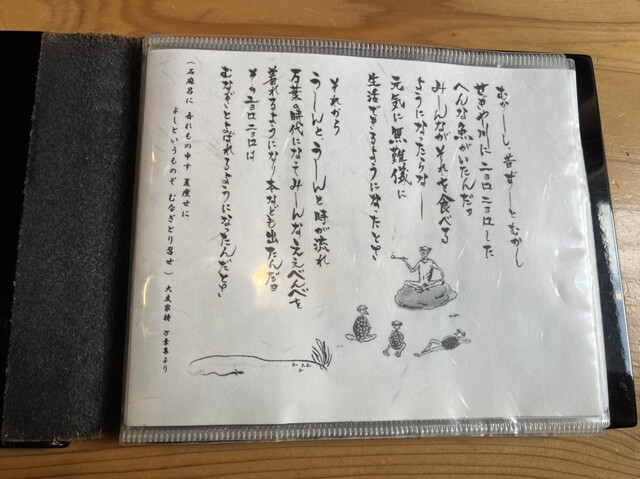 むかーしし、昔ずーとむかし
せきや川にニョロニョロした
へんな魚がいたんだヨ
みーんながそれを食べる
ようになったらなー
元気に無難儀に
生活できるようになったとサ
それから
うーんと、うーんと時が流れ
万葉の時代になてみーんなええべんべを
着れるようになり本なども出たんだヨ
そのニョロニョロは
むなぎとよばれるようになったんだとサ
（石麻呂に 吾れもの申す 夏痩せに、
よしというものぞ むなぎとり召せ） 大友家持 万葉集より